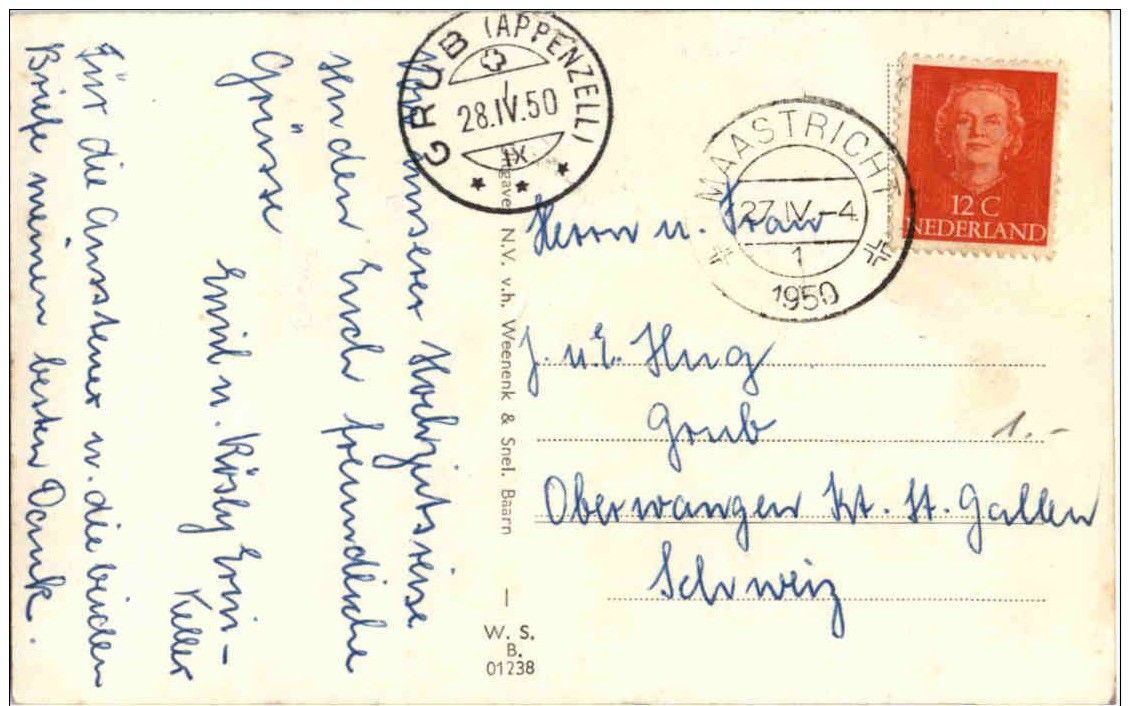 Von unserer Hochzeitsreise
senden Euch freundliche
Grüsse
Emil u. Rösly Erni-
Keller
Für die Aussteuer u. die beiden
Briefe meinen besten Dank.
GRUB (APPENZELL)
28.IV.50
IX
MAASTRICHT
27.IV.-4
1
1950
12 C
NEDERLAND
Herrn u. Frau
J. u. E. Hug
Grub
1.-
Oberwangen Kt. St. Gallen
Schweiz
N.V. v.h. Weenenk & Snel. Baarn
W. S.
B.
01238